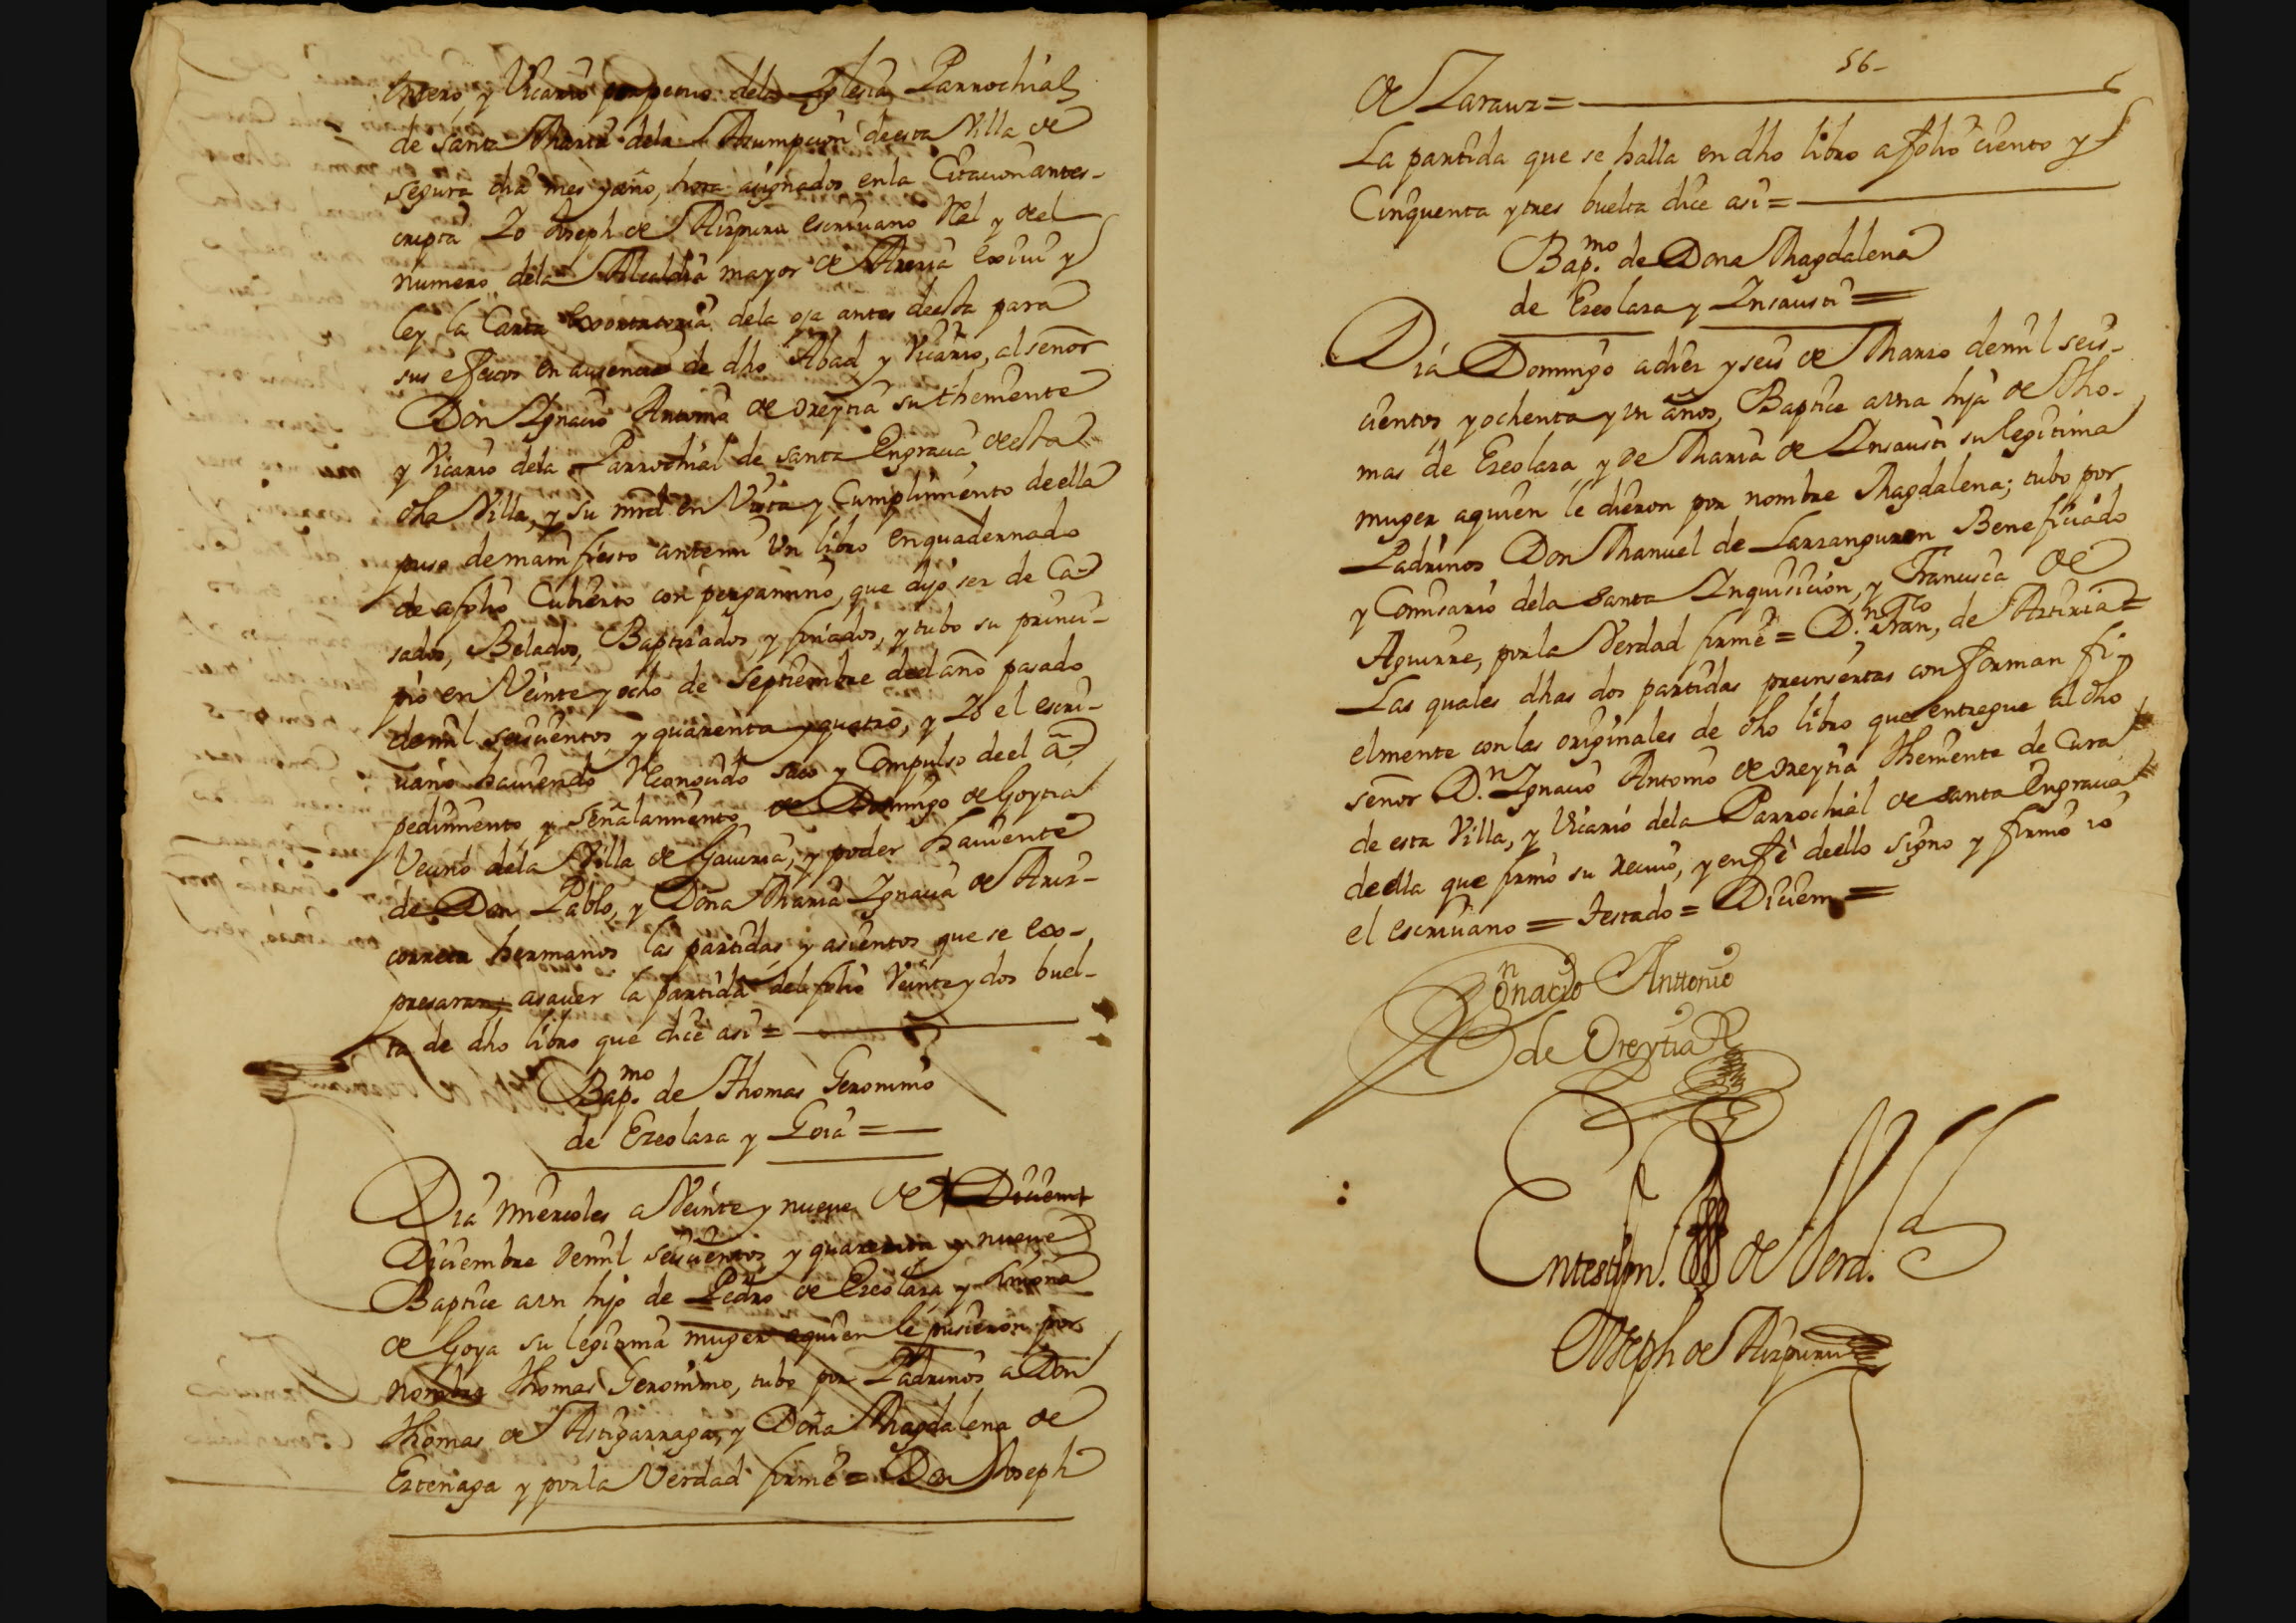 entero, y Vicario perpetuo dela Iglesia Parrochial
de santa Maria dela Assumpcion de esta Villa de
Segura dia mes y año, hora asignados enla Citacion antes-
cripta Yo Joseph de Aizpuru escriuano Rl y del
numero dela Alcaldia mayor de Areria exiui y
ley la Carta exortatoria dela oja antes de esta para
sus efectos en ausencia de dho Abad y Vicario, al señor
Don Ignacio Antonio de oreytia su theniente
y Vicario dela Parrochial de santa Engracia de esta
dha Villa, y su mrd en Vista y Cumplimiento de ella
puso de manifiesto antemi Vn libro enquadernado
de afolio Cubierto con pergamino, que dijo ser de Ca-
sados, Belados, Baptizados, y finados, y tubo su princi-
pio en Veinte y ocho de Septiembre del año pasado
de mil seiscientos y quarenta y quatro, y Yo el escri-
uano hauiendo Reconocido saco y Compulso de el a
pedimiento y señalamiento de Domingo de Goytia
Vecino dela Villa de Gauiria, y poder hauiente
de Don Pablo, y Doña Maria Ignacia de Ariz-
correta hermanos las partidas y asientos que se ex-
presaran; asauer la partida del folio Veinte y dos buel-
ta de dho libro que dice asi =
Bap.mo de Thomas Geronimo
de Ezeolaza y Goia =
Dia miercoles a Veinte y nueue de Diciem
Diciembre de mil seiscientos y quarenta y nueue
Baptice a vn hijo de Pedro de Ezeolaza y Simona
de Goya su legitima muger aquien le pusieron por
nombre Thomas Geronimo, tubo por Padrinos a Don
Thomas de Astigarraga, y Doña Magdalena de
Estenaga y por la Verdad firmè = Don Joseph
56-
de Zarauz =
La partida que se halla en dho libro a folio ciento y
Cinquenta y tres buelta dice asi =
Bap.mo de Dona Magdalena
de Ezeolaza y Insausti =
Dia Domingo a diez y seis de Marzo de mil seis-
cientos y ochenta y vn años, Baptice a vna hija de Tho-
mas de Ezeolaza y de Maria de Insausti su legitima
muger aquien le dieron por nombre Magdalena; tubo por
Padrinos Don Manuel de Larranguren Beneficiado
y Comisario dela Santa Inquisicion, y Francisca de
Aguirre, por la Verdad firmè = D.n Fran,co de Asturia =
Las quales dhas dos partidas preinsertas conforman fi-
elmente con las originales de dho libro que entregue al dho
señor D.n Ignacio Antonio de oreytia theniente de Cura
de esta Villa, y Vicario dela Parrochial de santa Engracia
de ella que firmò su reciuo, y en fè de ello signo y firmo io
el escriuano = testado = Diciem =
Ygnacio Anttonio
de Oreytia
En testim.o de Verd.d
Joseph de Aizpuru